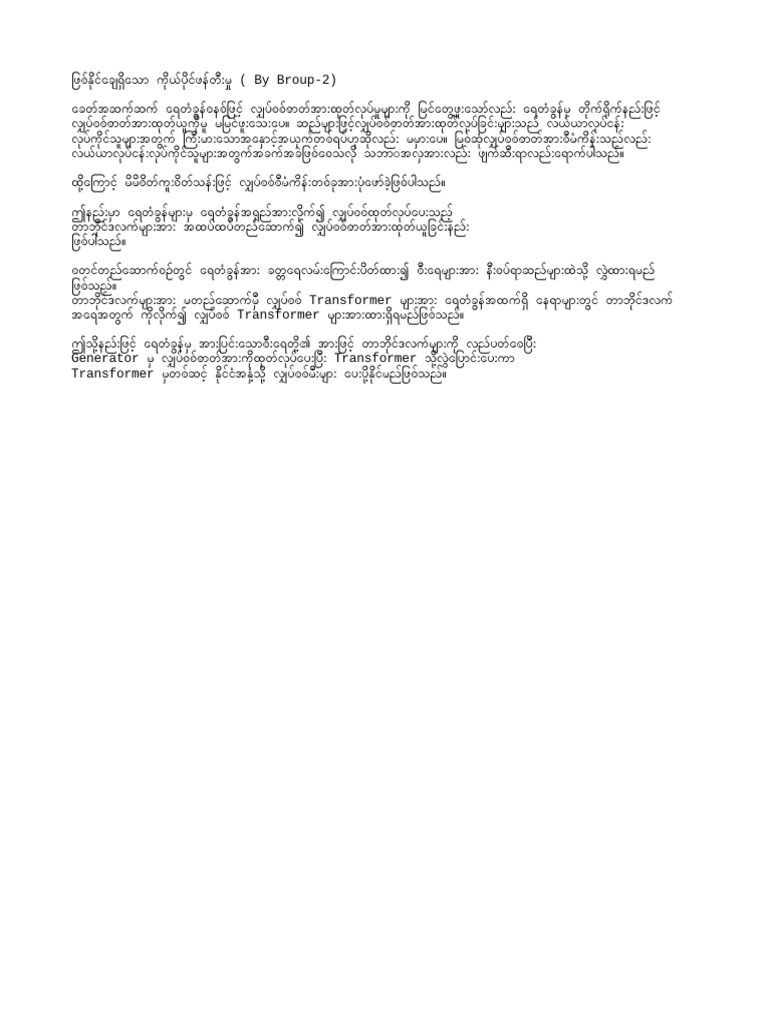 ဖြစ်နိုင်ချေရှိသော ကိုယ်ပိုင်ဖန်တီးမှု ( By Broup-2)
ခေတ်အဆက်ဆက် ရေတံခွန်စနစ်ဖြင့် လျှပ်စစ်ဓာတ်အားထုတ်လုပ်မှုများကို မြင်တွေ့ဖူးသော်လည်း ရေတံခွန်မှ တိုက်ရိုက်နည်းဖြင့်
လျှပ်စစ်ဓာတ်အားထုတ်ယူကိုမူ မမြင်ဖူးသေးပေ။ ဆည်များဖြင့်လျှပ်စစ်ဓာတ်အားထုတ်လုပ်ခြင်းများသည် လယ်ယာလုပ်ငန်း
လုပ်ကိုင်သူများအတွက် ကြီးမားသောအနှောင့်အယှက်တစ်ရပ်ဟုဆိုလည်း မမှားပေ။ မြစ်ဆုံလျှပ်စစ်ဓာတ်အားစီမံကိန်းသည်လည်း
လယ်ယာလုပ်ငန်းလုပ်ကိုင်သူများအတွက်အခက်အခဲဖြစ်စေသလို သဘာဝအလှအားလည်း ဖျက်ဆီးရာလည်းရောက်ပါသည်။
ထို့ကြောင့် မိမိစိတ်ကူးစိတ်သန်းဖြင့် လျှပ်စစ်စီမံကိန်းတစ်ခုအားပုံဖော်ခဲ့ဖြစ်ပါသည်။
ဤနည်းမှာ ရေတံခွန်များမှ ရေတံခွန်အရှည်အားလိုက်၍ လျှပ်စစ်ထုတ်လုပ်ပေးသည့်
တာဘိုင်ဒလက်များအား အထပ်ထပ်တည်ဆောက်၍ လျှပ်စစ်ဓာတ်အားထုတ်ယူခြင်းနည်း
ဖြစ်ပါသည်။
စတင်တည်ဆောက်စဉ်တွင် ရေတံခွန်အား ခတ္တရေလမ်းကြောင်းပိတ်ထား၍ စီးရေများအား နီးစပ်ရာဆည်များထဲသို့ လွှဲထားရမည်
ဖြစ်သည်။
တာဘိုင်ဒလက်များအား မတည်ဆောက်မှီ လျှပ်စစ် Transformer များအား ရေတံခွန်အထက်ရှိ နေရာများတွင် တာဘိုင်ဒလက်
အရေအတွက် ကိုလိုက်၍ လျှပ်စစ် Transformer များအားထားရှိရမည်ဖြစ်သည်။
ဤသို့နည်းဖြင့် ရေတံခွန်မှ အားပြင်းသောစီးရေတို့၏ အားဖြင့် တာဘိုင်ဒလက်များကို လည်ပတ်စေပြီး
Generator မှ လျှပ်စစ်ဓာတ်အားကိုထုတ်လုပ်ပေးပြီး Transformer သို့လွှဲပြောင်းပေးကာ
Transformer မှတစ်ဆင့် နိုင်ငံအနှံ့သို့ လျှပ်စစ်မီးများ ပေးပို့နိုင်မည်ဖြစ်သည်။